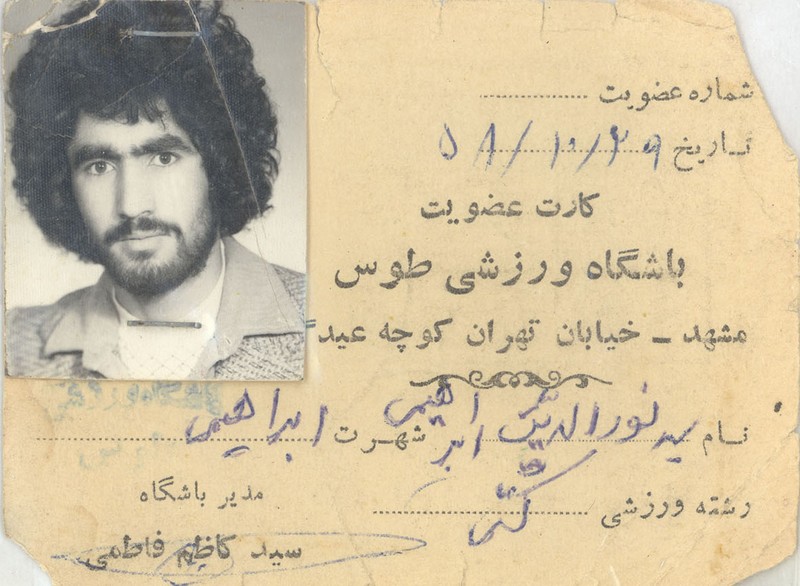 شماره عضویت
تاریخ ۵۸/۱۰/۲۹
کارت عضویت
باشگاه ورزشی طوس
مشهد ـ خیابان تهران کوچه عید
نام سید نورالدین ابراهیمی شهرت ابراهیمی
رشته ورزشی کشتی
مدیر باشگاه
سید کاظم فاطمی